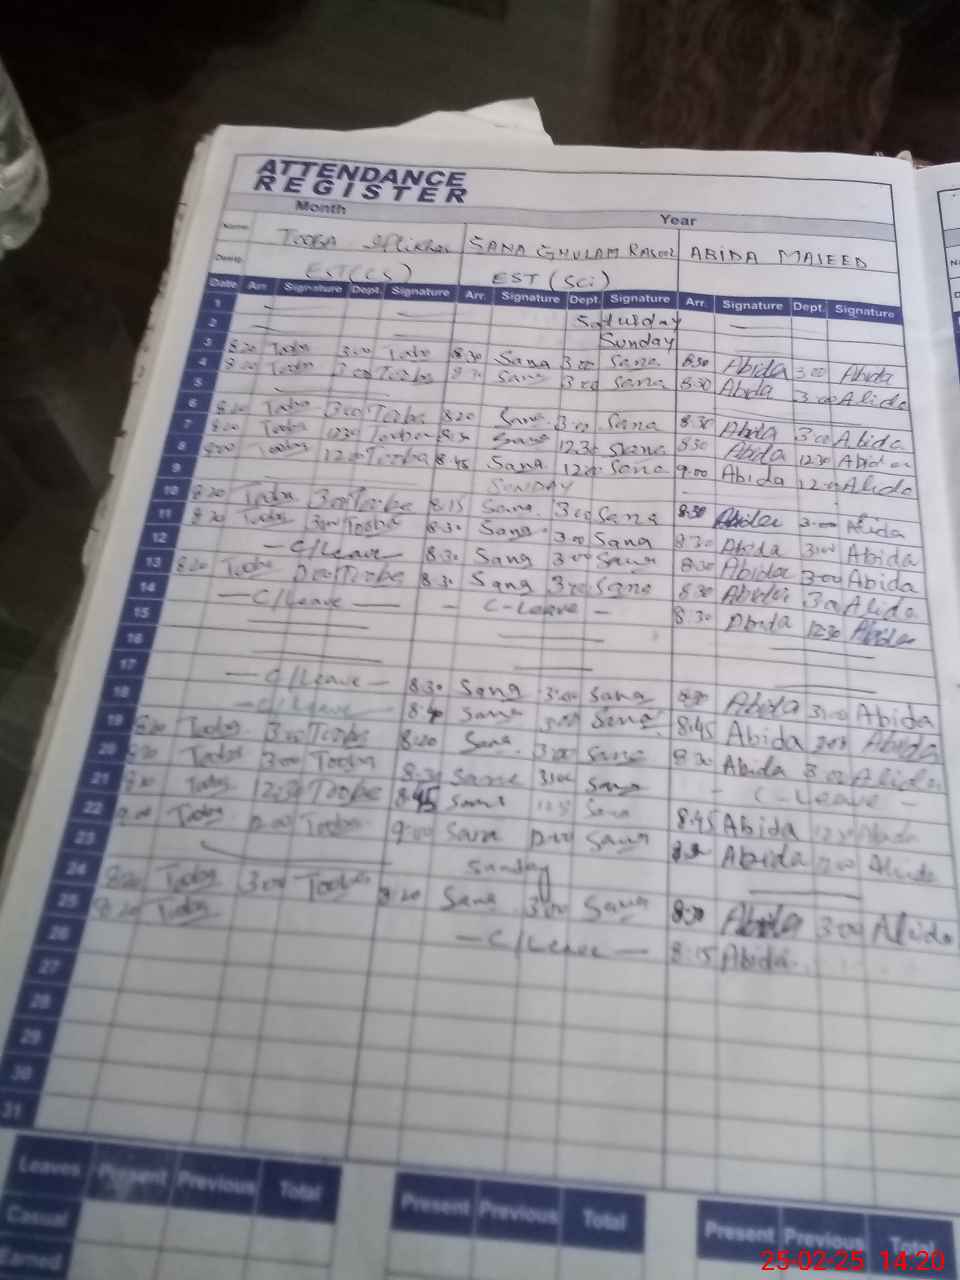 ATTENDANCE
REGISTER
Month Year
Name TOOBA Iftikhar SANA GHULAM RASOOL ABIDA MAJEED
Desig. EST(CS) EST (Sci)
Date Arr. Signature Dept. Signature Arr. Signature Dept. Signature Arr. Signature Dept. Signature
1 Saturday
2 Sunday
3 8:20 Tooba 3:00 Tooba 8:30 Sana 3:00 Sana 8:30 Abida 3:00 Abida
4 Tooba 3:00 Tooba Sana 3:00 Sana 8:30 Abida 3:00 Abida
5
6 8:20 Tooba 3:00 Tooba 8:20 Sana 3:00 Sana 8:30 Abida 3:00 Abida
7 Tooba 12:30 Tooba Sana 12:30 Sana 8:30 Abida 12:30 Abida
8 9:00 Tooba 12:00 Tooba 8:45 Sana 12:00 Sana 9:00 Abida 12:00 Abida
9 SUNDAY
10 8:20 Tooba 3:00 Tooba 8:15 Sana 3:00 Sana 8:30 Abida 3:00 Abida
11 8:20 Tooba 3:00 Tooba 8:30 Sana 3:00 Sana 8:30 Abida 3:00 Abida
12 - C/Leave - 8:30 Sana 3:00 Sana 8:30 Abida 3:00 Abida
13 8:20 Tooba 3:00 Tooba 8:30 Sana 3:00 Sana 8:30 Abida 3:00 Abida
14 - C/Leave - - C-Leave - 8:30 Abida 12:30 Abida
15
16
17 - C/Leave - 8:30 Sana 3:00 Sana 8:30 Abida 3:00 Abida
18 - C/Leave 8:40 Sana 3:00 Sana 8:45 Abida 3:00 Abida
19 8:20 Tooba 3:00 Tooba 8:20 Sana 3:00 Sana 8:30 Abida 3:00 Abida
20 8:20 Tooba 3:00 Tooba 8:30 Sana 3:00 Sana - C-Leave
21 Tooba 12:30 Tooba 8:45 Sana Sana 8:45 Abida 12:30 Abida
22 9:00 Tooba 12:00 Tooba 9:00 Sana 12:00 Sana Abida 12:00 Abida
23 Sunday
24 8:20 Tooba 3:00 Tooba 8:20 Sana 3:00 Sana 8:30 Abida 3:00 Abida
25 8:20 Tooba - C/Leave - 8:15 Abida
26
27
28
29
30
31
Leaves Present Previous Total Present Previous Total Present Previous Total
Casual
Earned
25-02-25 14:20